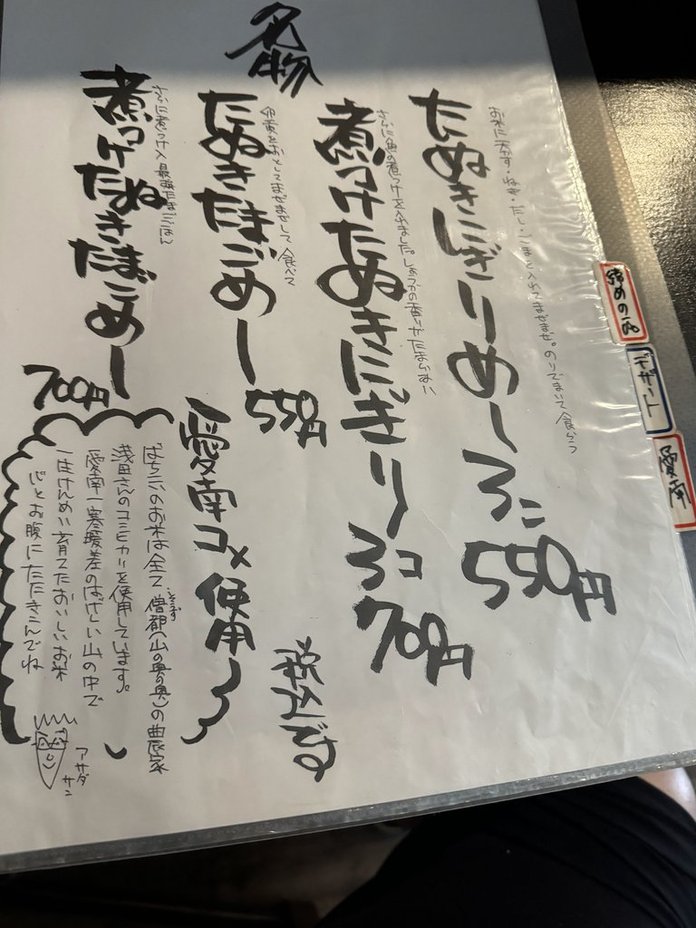 名物
お米に天かす・ねぎ・だし・ごまを入れてまぜまぜ。のりでまいて食べる
たぬきにぎりめし 3コ 550円
さらに魚の煮つけを入れました。しょうがの香りがたまらない
煮つけたぬきにぎり 3コ 700円
卵黄をおとしてまぜまぜして食べて
たぬきたまごめし 550円
さらに煮つけ入り最強たまごごはん
煮つけたぬきたまごめし 700円
税込です
愛南コメ使用
ばちこいのお米は全て僧都(山の奥の奥)の農家
そうず
浅田さんのコシヒカリを使用しています。
愛南一寒暖差のはげしい山の中で
一生けんめい育てたおいしいお米
バッとお腹にたたきこんでね
アサダサン
締めの一品
デザート
愛南